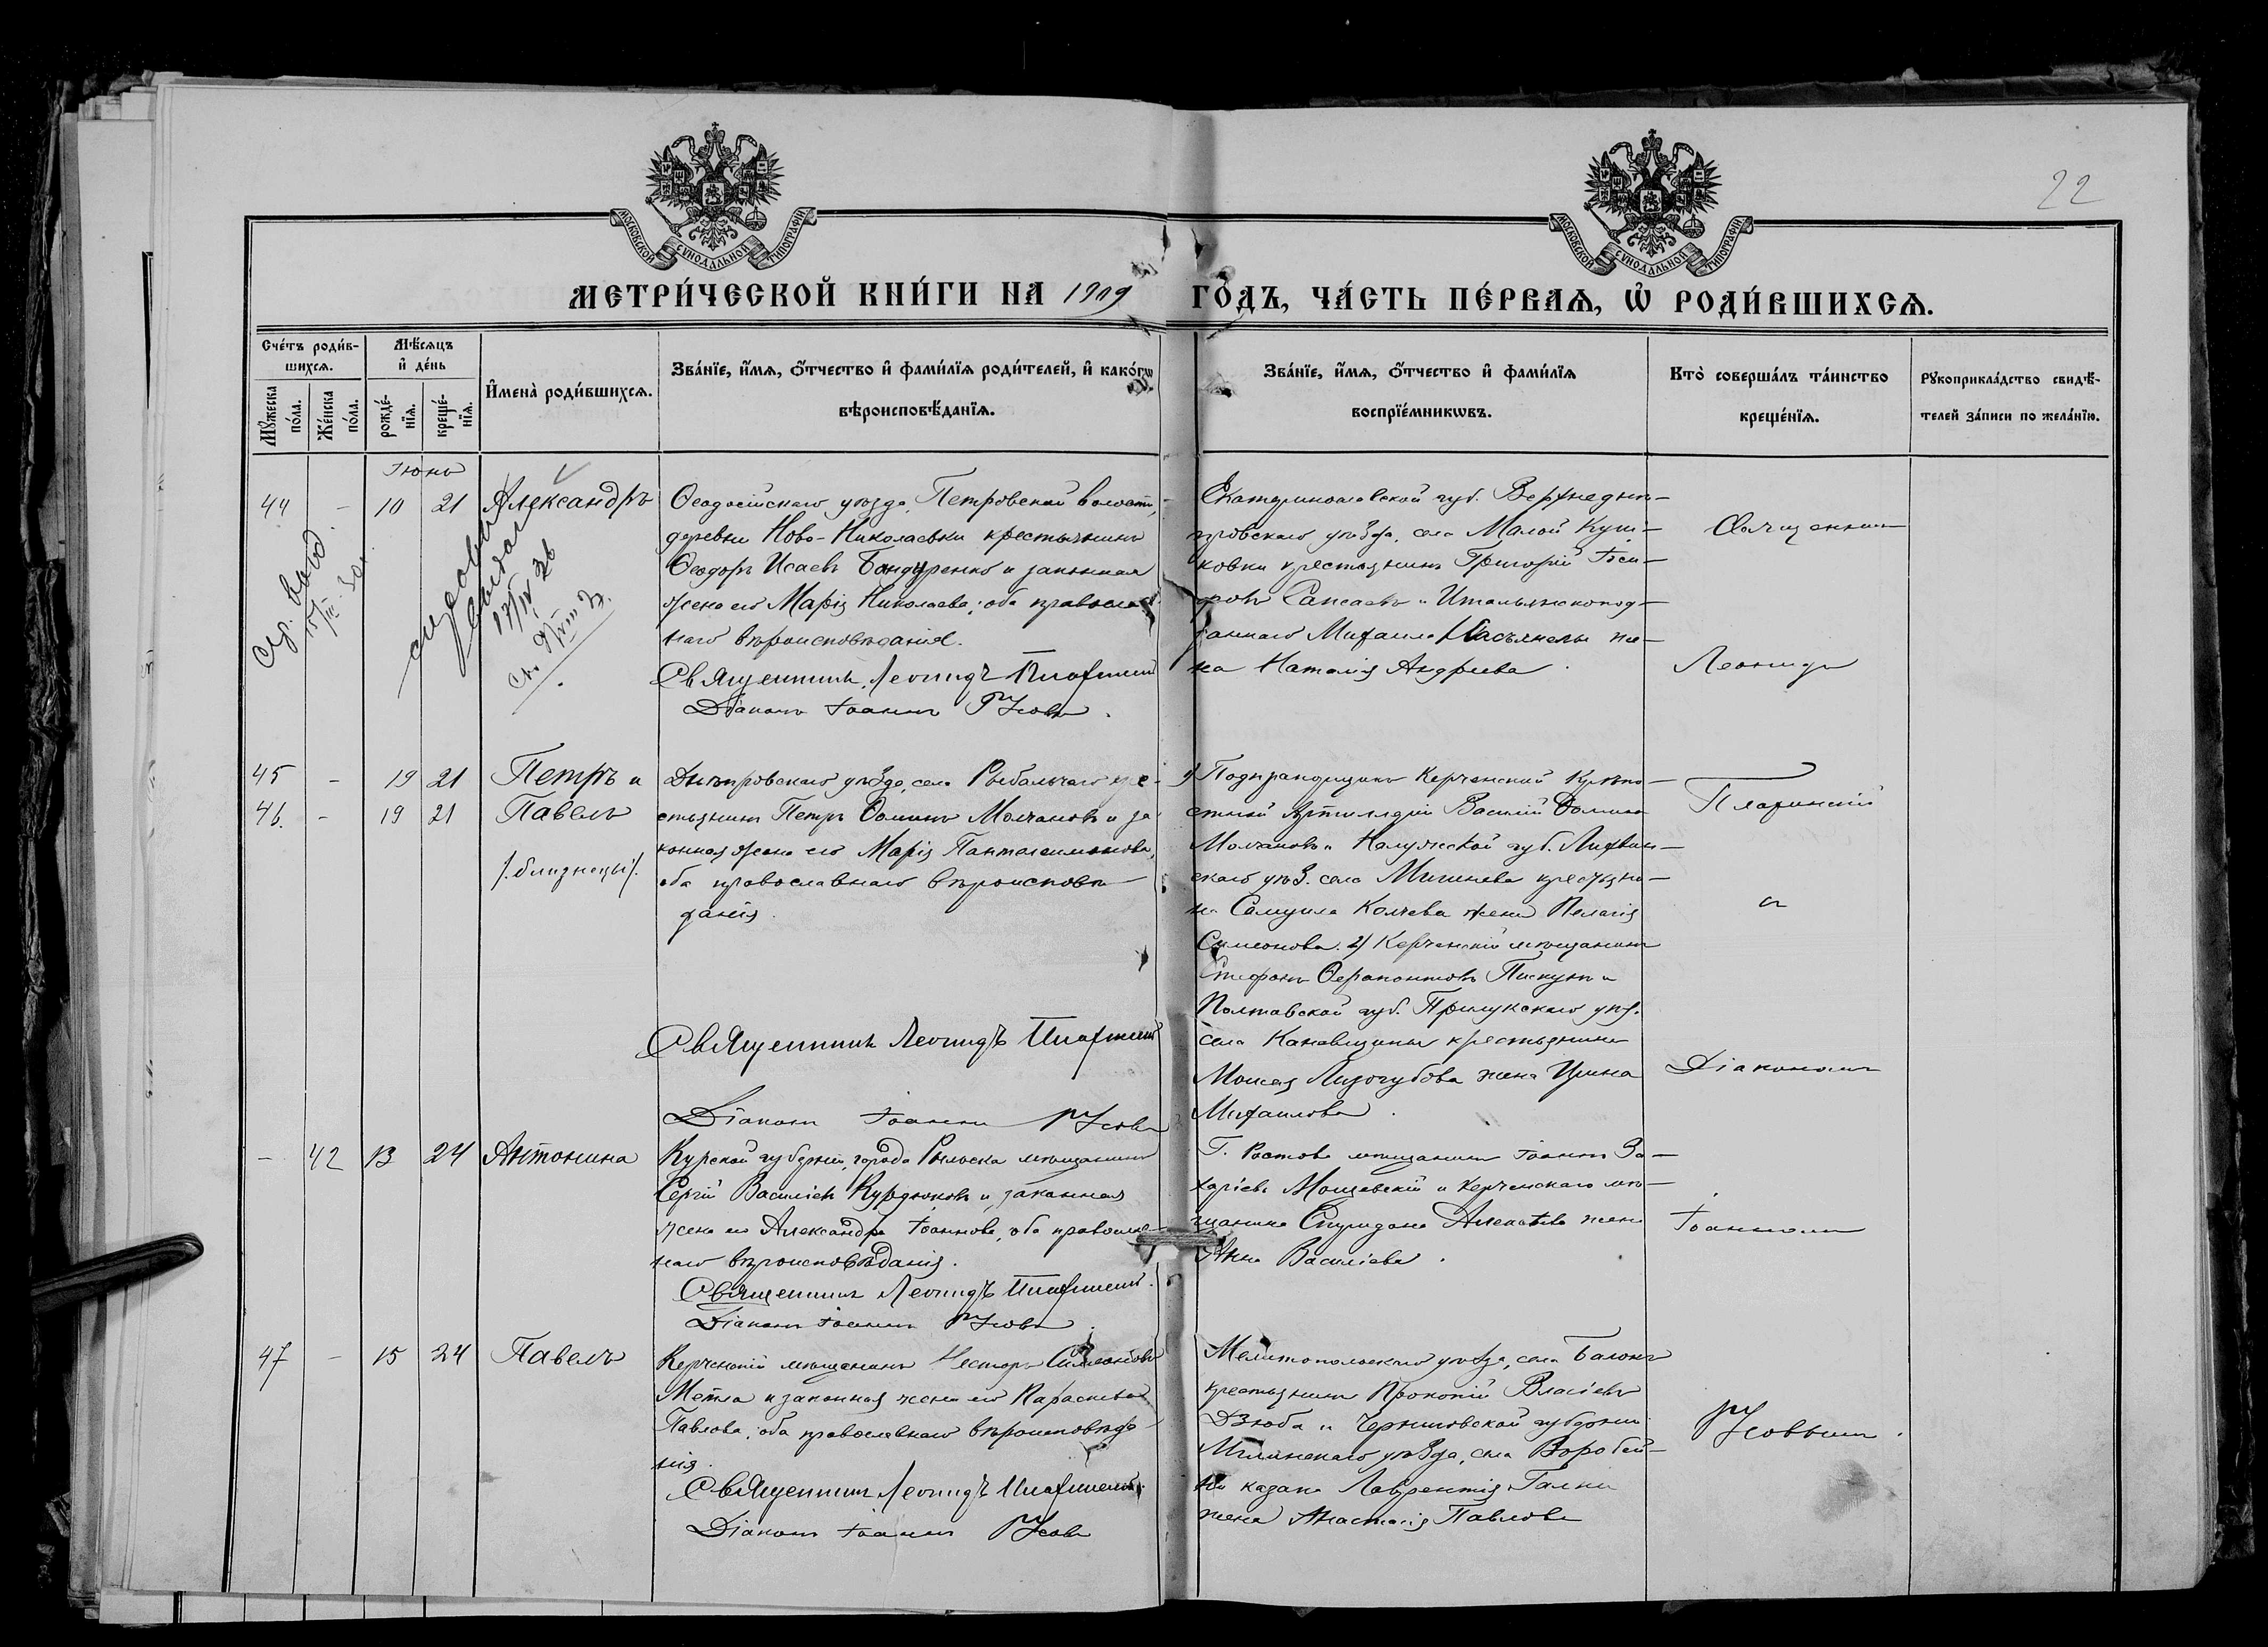 22
МОСКОВСКОЙ СѴНОДАЛЬНОЙ ТИПОГРАФІИ
МОСКОВСКОЙ СѴНОДАЛЬНОЙ ТИПОГРАФІИ
МЕТРИ́ЧЕСКОЙ КНИ́ГИ НА 1909 ГО́ДЪ, ЧА́СТЬ ПЕ́РВАѦ, Ѡ҆ РОДИ́ВШИХСѦ.
Сче́тъ роди́в-
шихсѧ.
Мꙋ́жеска по́ла.
Же́нска по́ла.
Мѣ́сѧцъ и҆ де́нь
рожде́-
нїѧ.
креще́-
нїѧ.
И҆мена̀ роди́вшихсѧ.
Зва́нїе, и҆́мѧ, ѻ҆́тчество и҆ фами́лїѧ роди́телей, и҆ како́гѡ
вѣроисповѣ́данїѧ.
Зва́нїе, и҆́мѧ, ѻ҆́тчество и҆ фами́лїѧ
воспрїе́мникѡвъ.
Кто̀ соверша́лъ та́инство
креще́нїѧ.
Рꙋкоприкла́дство свидѣ́-
телей за́писи по жела́нїю.
Іюнь
44 - 10 21 Александръ
Ѳеодосійскаго уѣзда, Петровской волости,
деревни Ново-Николаевки крестьянинъ
Ѳеодоръ Исаевъ Бондаренко и законная
жена его Марія Николаева, оба православ
наго вѣроисповѣданія.
Священникъ Леонидъ
Діаконъ Іоаннъ Усовъ.
Екатеринославской губ. Верхнеднѣ-
провскаго уѣзда, села Малой
ковки крестьянинъ Григорій
и Итальянскопод-
даннаго Михаила же-
на Наталія Андреева.
Священник
Леонидъ
45 - 19 21 Петръ и
46. - 19 21 Павелъ
/. близнецы /.
Днѣпровскаго уѣзда, села Рыбальчаго кре-
стьянинъ Петръ Ѳоминъ Молчановъ и за-
конная жена его Марія Пантелеимонова,
оба православнаго вѣроисповѣ-
данія.
Священникъ Леонидъ
Діаконъ Іоаннъ Усовъ
1) Керченской крѣпо-
стной Артиллеріи Василій Ѳоминъ
Молчановъ и Калужской губ. Лихвин-
скаго уѣз. села Мишнева крестьяни-
на Самуила Колчева жена Пелагія
Симеонова. 2) Керченскій мѣщанинъ
Стефанъ Ѳерапонтовъ Пискунъ и
Полтавской губ. Прилукскаго уѣз.
села крестьянина
Моисея Лизогубова жена Ирина
Михаилова.
и
Діакономъ
- 42 13 24 Антонина
Курской губерніи, города Рыльска мѣщанинъ
Сергій Василіевъ Курдюковъ и законная
жена его Александра Іоаннова, оба православ-
наго вѣроисповѣданія.
Священникъ Леонидъ
Діаконъ Іоаннъ Усовъ.
Г. Ростова мѣщанинъ Іоаннъ За-
харіевъ и Керченскаго мѣ-
щанина Спиридона жена
Анна Василіева.
Іоанномъ
47 - 15 24 Павелъ
Керченскій мѣщанинъ Несторъ Симеоновъ
Метла и законная жена его Параскева
Павлова, оба православнаго вѣроисповѣда-
нія.
Священникъ Леонидъ
Діаконъ Іоаннъ Усовъ
Мелитопольскаго уѣзда, села
крестьянинъ Прокопій Власіевъ
Дзюба и Черниговской губерніи
Мглинскаго уѣзда, села Воробей-
ни казака Лаврентія Галки
жена Анастасія Павлова
Усовымъ.